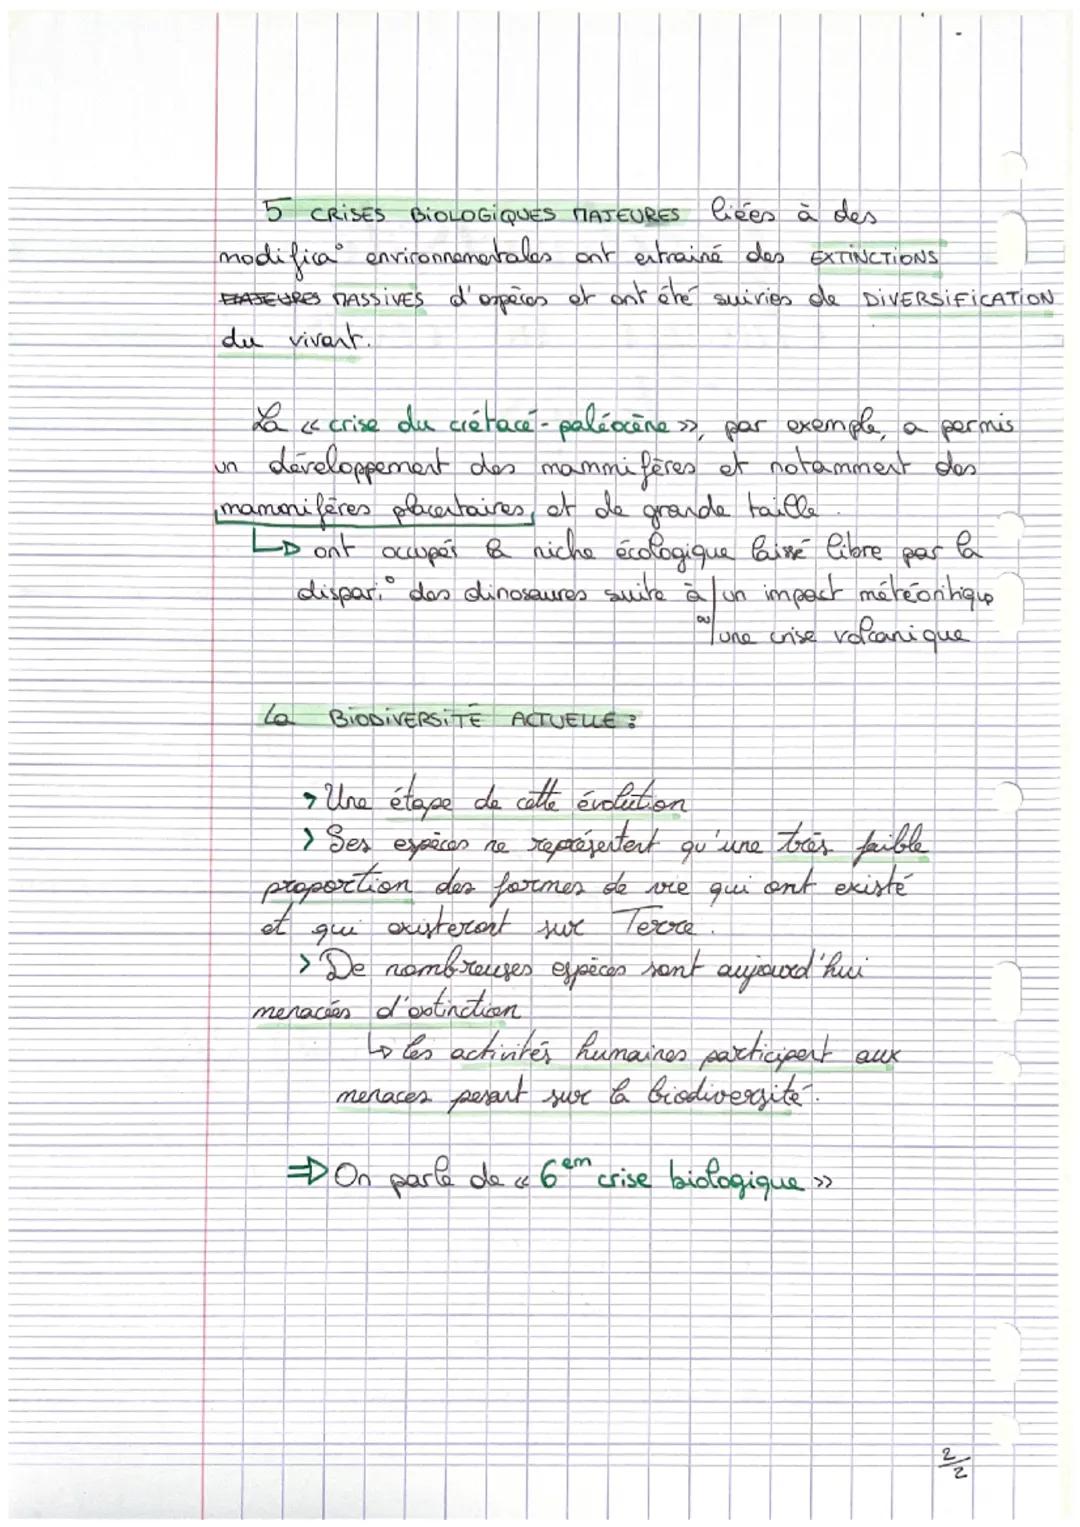 5 CRISES BIOLOGIQUES MAJEURES liées à des
modifica° environnementales ont entrainé des EXTINCTIONS
MAJEURES MASSIVES d'espèces et ont été suivies de DIVERSIFICATION
du vivant.
La « crise du crétacé-paléocène », par exemple, a permis
un développement des mammifères et notamment des
mammifères placentaires, et de grande taille.
↳ ont occupés la niche écologique laissé libre par la
dispari° des dinosaures suite à / un impact météoritique
ou / une crise volcanique
La BIODIVERSITÉ ACTUELLE :
> Une étape de cette évolution
> Ses espèces ne représentent qu'une très faible
proportion des formes de vie qui ont existé
et qui existeront sur Terre.
> De nombreuses espèces sont aujourd'hui
menacées d'extinction
↳ les activités humaines participent aux
menaces pesant sur la biodiversité.
⇒ On parle de « 6em crise biologique »
2/2